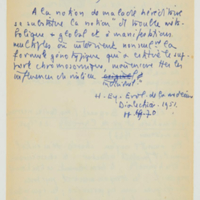 A la notion de maladie héréditaire
se substitue la notion de trouble méta-
bolique "global" et à manifestations
multiples où intervient non seult la
formule génotypique qui a activé le sup-
port chromosomique, mais les
influences du milieu
H. Ey - Evol. de la médecine
1951.